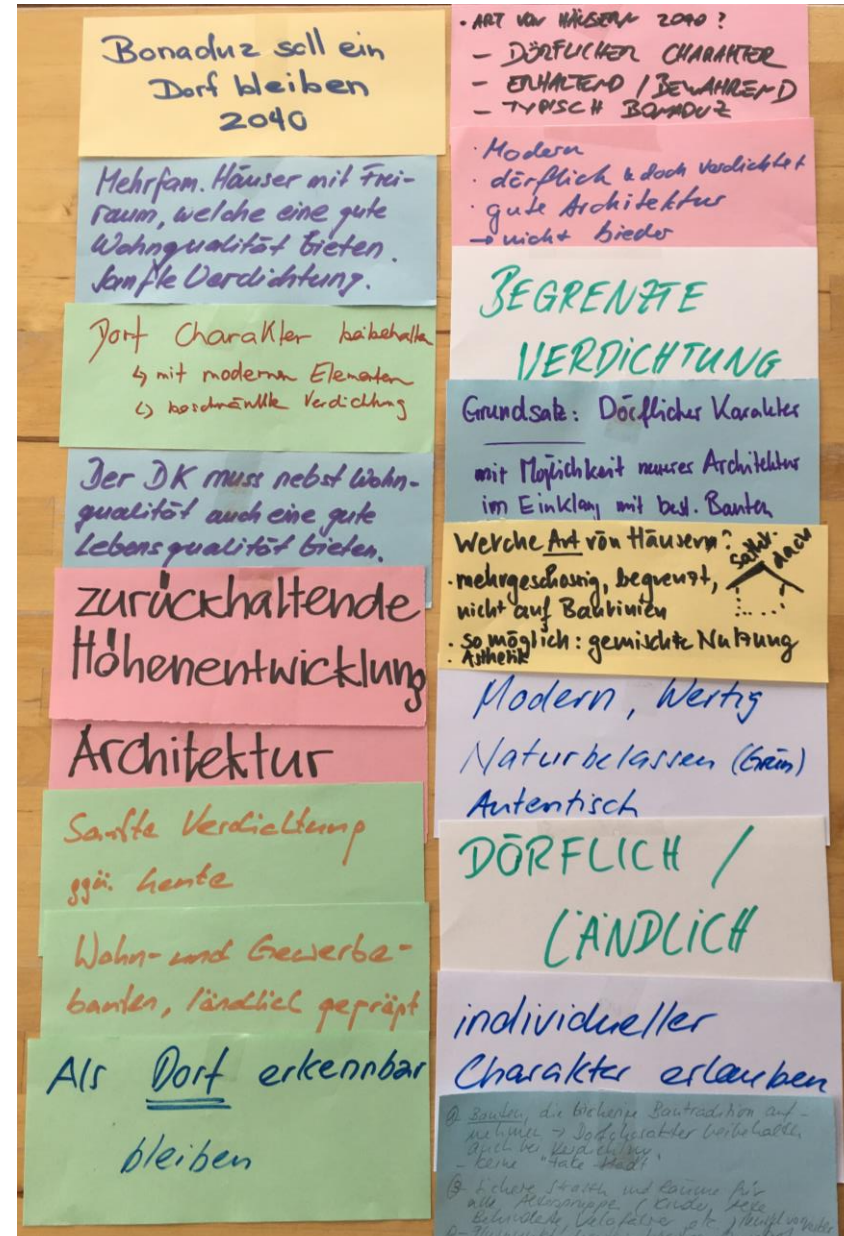 Bonaduz soll ein
Dorf bleiben
2040
Mehrfam. Häuser mit Frei-
raum, welche eine gute
Wohnqualität bieten.
Sanfte Verdichtung.
Dorf Charakter beibehalten
↳ mit modernen Elementen
↳ beschränkte Verdichtung
Der DK muss nebst Wohn-
qualität auch eine gute
Lebensqualität bieten.
zurückhaltende
Höhenentwicklung
Architektur
Sanfte Verdichtung
ggü. heute
Wohn- und Gewerbe-
bauten, ländlich geprägt
Als Dorf erkennbar
bleiben
· ART VON HÄUSERN 2040?
– DÖRFLICHER CHARAKTER
– ERHALTEND / BEWAHREND
– TYPISCH BONADUZ
· Modern
· dörflich & doch verdichtet
· gute Architektur
→ nicht bieder
BEGRENZTE
VERDICHTUNG
Grundsatz: Dörflicher Karakter
mit Möglichkeit neuerer Architektur
im Einklang mit best. Bauten
Welche Art von Häusern?
Satteldach
· mehrgeschossig, begrenzt,
nicht auf Baulinien
· so möglich: gemischte Nutzung
· Ästhetik
Modern, Wertig
Naturbelassen (Grün)
Autentisch
DÖRFLICH /
LÄNDLICH
individueller
Charakter erlauben
Bauten, die bisherige Bautradition auf-
nehmen → Dorfcharakter beibehalten
auch bei Verdichtung.
– keine "fake Stadt"
Sichere Strassen und Räume für
alle Altersgruppe (Kinder,
Behinderte, Velofahrer etc.